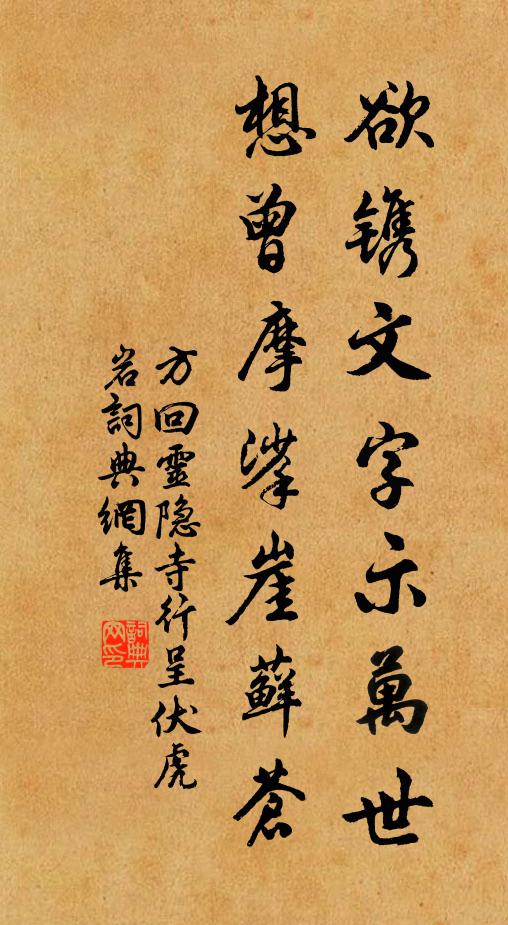 欲镌文字示萬世
想曾摩挲崖蘚蒼
方回靈隐寺行呈伏虎
岩詞典網集
詞典
网印